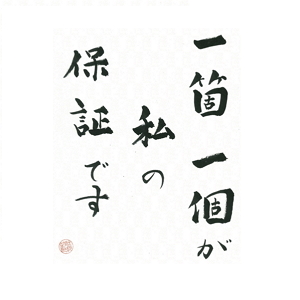 一箇一個が
私の
保証です